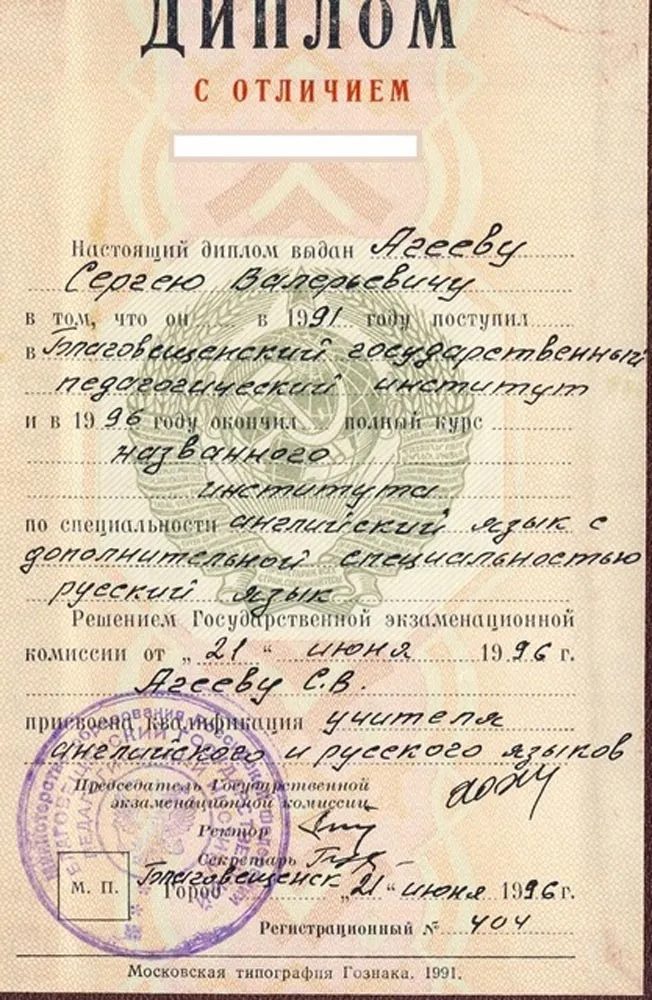 ДИПЛОМ
С ОТЛИЧИЕМ
Настоящий диплом выдан Агееву
Сергею Валерьевичу
в том, что он в 1991 году поступил
в Благовещенский государственный
педагогический институт
и в 1996 году окончил полный курс
названного
института
по специальности английский язык с
дополнительной специальностью
русский язык
Решением Государственной экзаменационной
комиссии от „21“ июня 1996 г.
Агееву С.В.
присвоена квалификация учителя
английского и русского языков
Председатель Государственной
экзаменационной комиссии
Ректор
Секретарь
М. П.
Город Благовещенск „21“ июня 1996 г.
Регистрационный № 404
Московская типография Гознака. 1991.